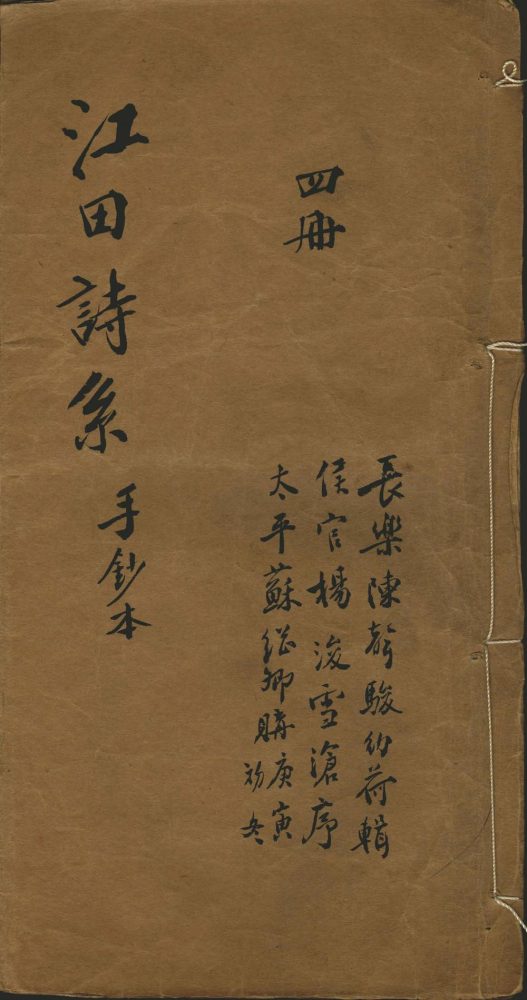 四冊
長樂陳駿荷輯
侯官楊浚雪滄序
太平蘇継卿購庚寅
初冬
江田詩系
手鈔本